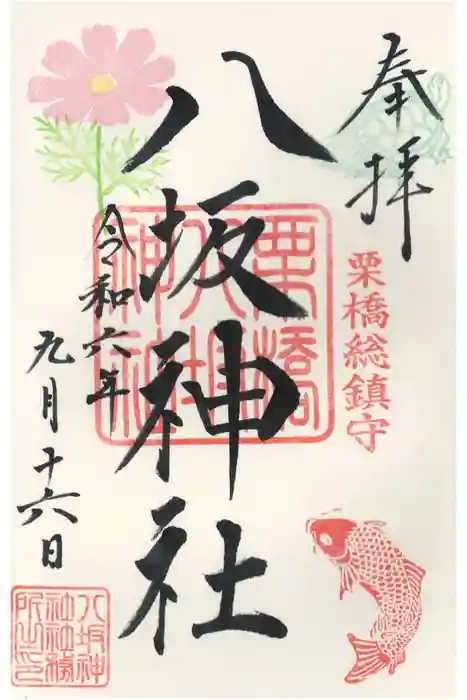 奉拝
栗橋総鎮守
八坂神社
栗橋
八坂
神社
令和六年
九月十六日
八坂神
社社務
所之印